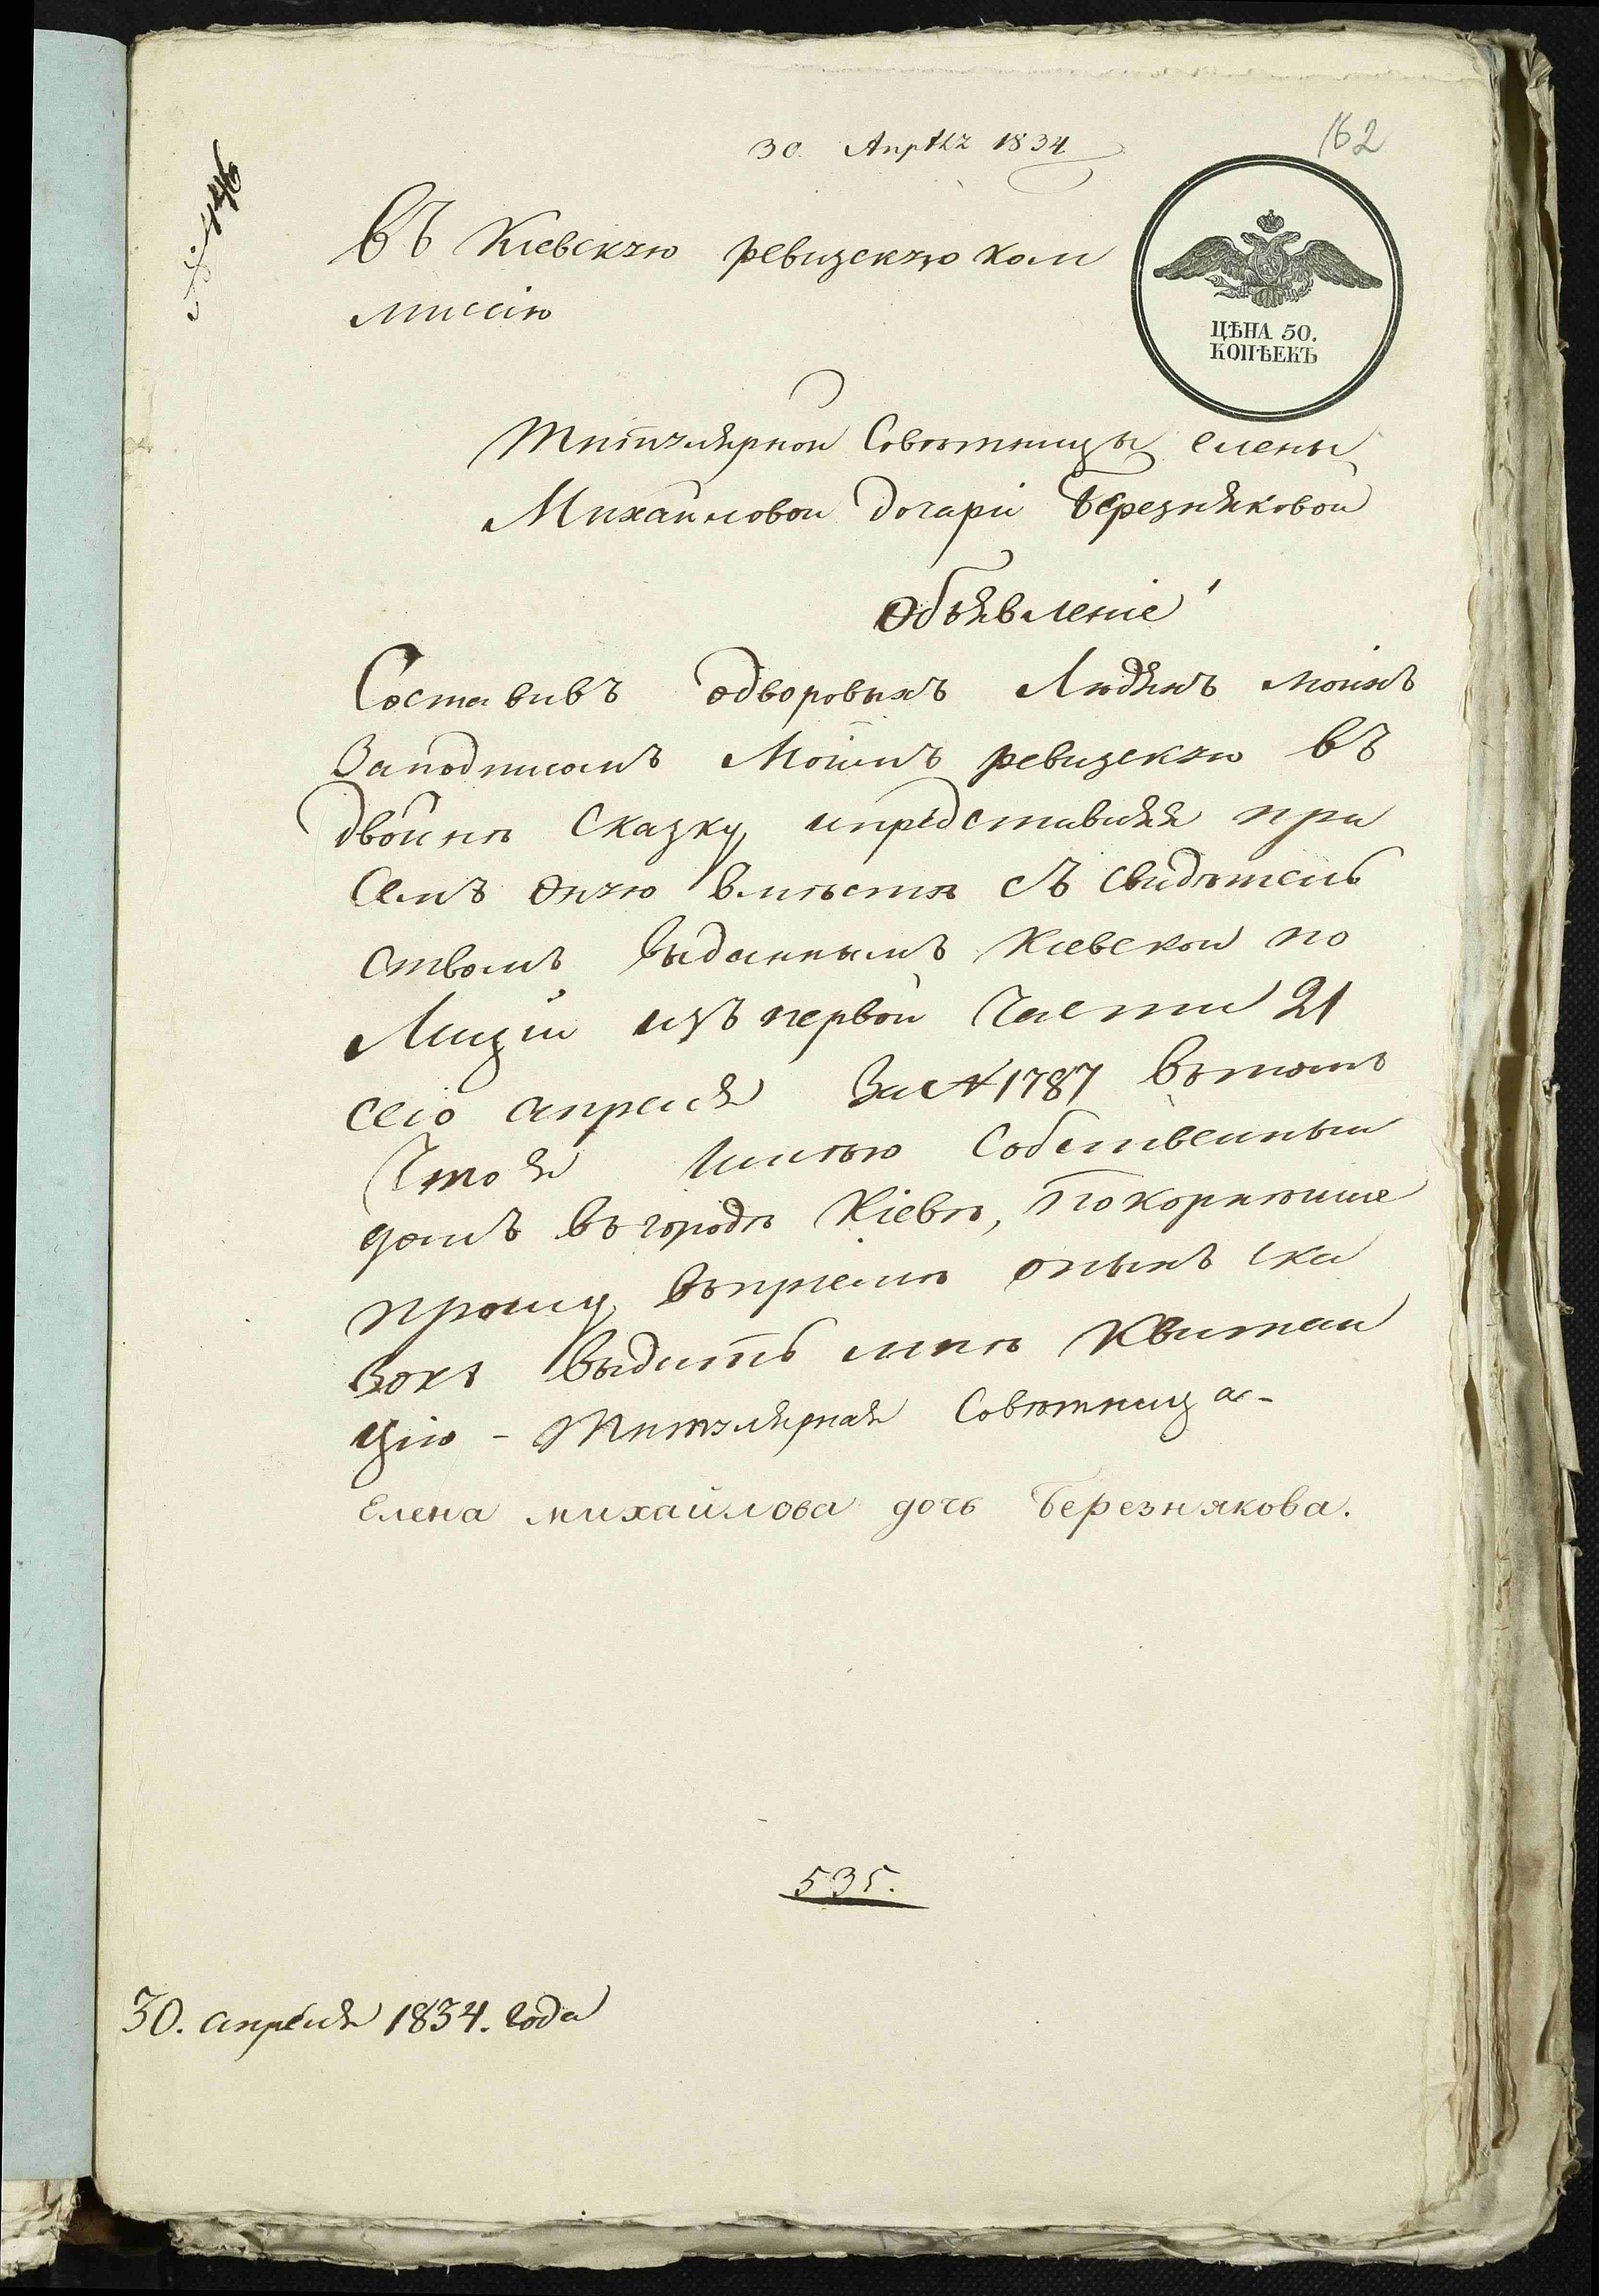 30. Апрѣл 1834
162
№ 446
ВЪ Кіевскую ревизскую ком
миссію
ЦѢНА 50.
КОПѢЕКЪ
Титулярной Совѣтницы елены
Михайловой дочери Березняковой
Объявленіе
Составивъ одворовыхъ Людяхъ моихъ
Заподписомъ Моимъ ревизскую въ
двойнѣ Сказку ипредставляя при
Семъ Оную вмѣстѣ съ Свидѣтель
ствомъ выданнымъ Кіевской по
Лиціи изъ первой Части 21
сего апреля За № 1787 вътомъ
Что я Имѣю Собственный
домъ въ городѣ Кіевѣ, Покорнѣише
прошу въпріемѣ оныхъ ска
зокъ выдать мнѣ Квитан
цію - Титулярная Совѣтница -
Елена михайлова дочь Березнякова.
535.
30. апреля 1834. года